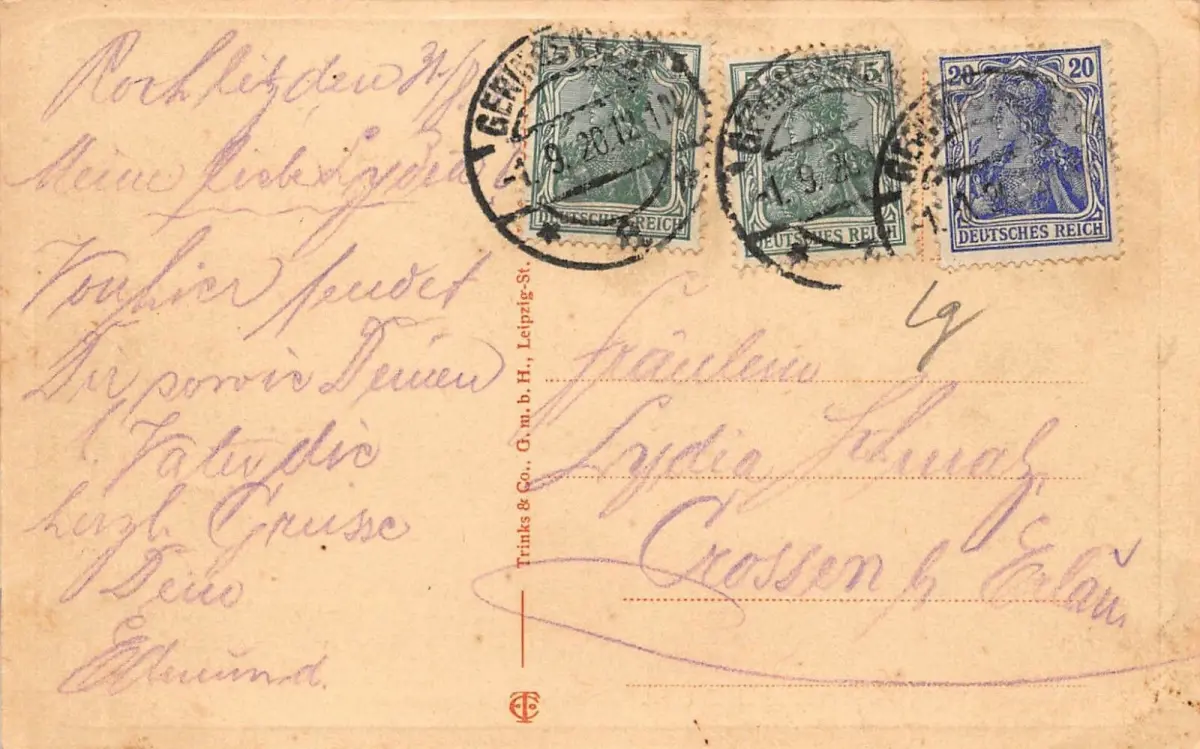 Rochlitz den 31/8.
Meine liebe Lydia
Von hier sendet
Dir sowie Deinen
Vater die
herzl. Grüsse
Dein
Edmund.
Trinks & Co., G.m.b.H., Leipzig-St.
5 5
20 20
DEUTSCHES REICH
DEUTSCHES REICH
DEUTSCHES REICH
-1.9.20.12-1N
-1.9.20
Fräulein
Lydia Schmalz
Crossen b/ Erlau